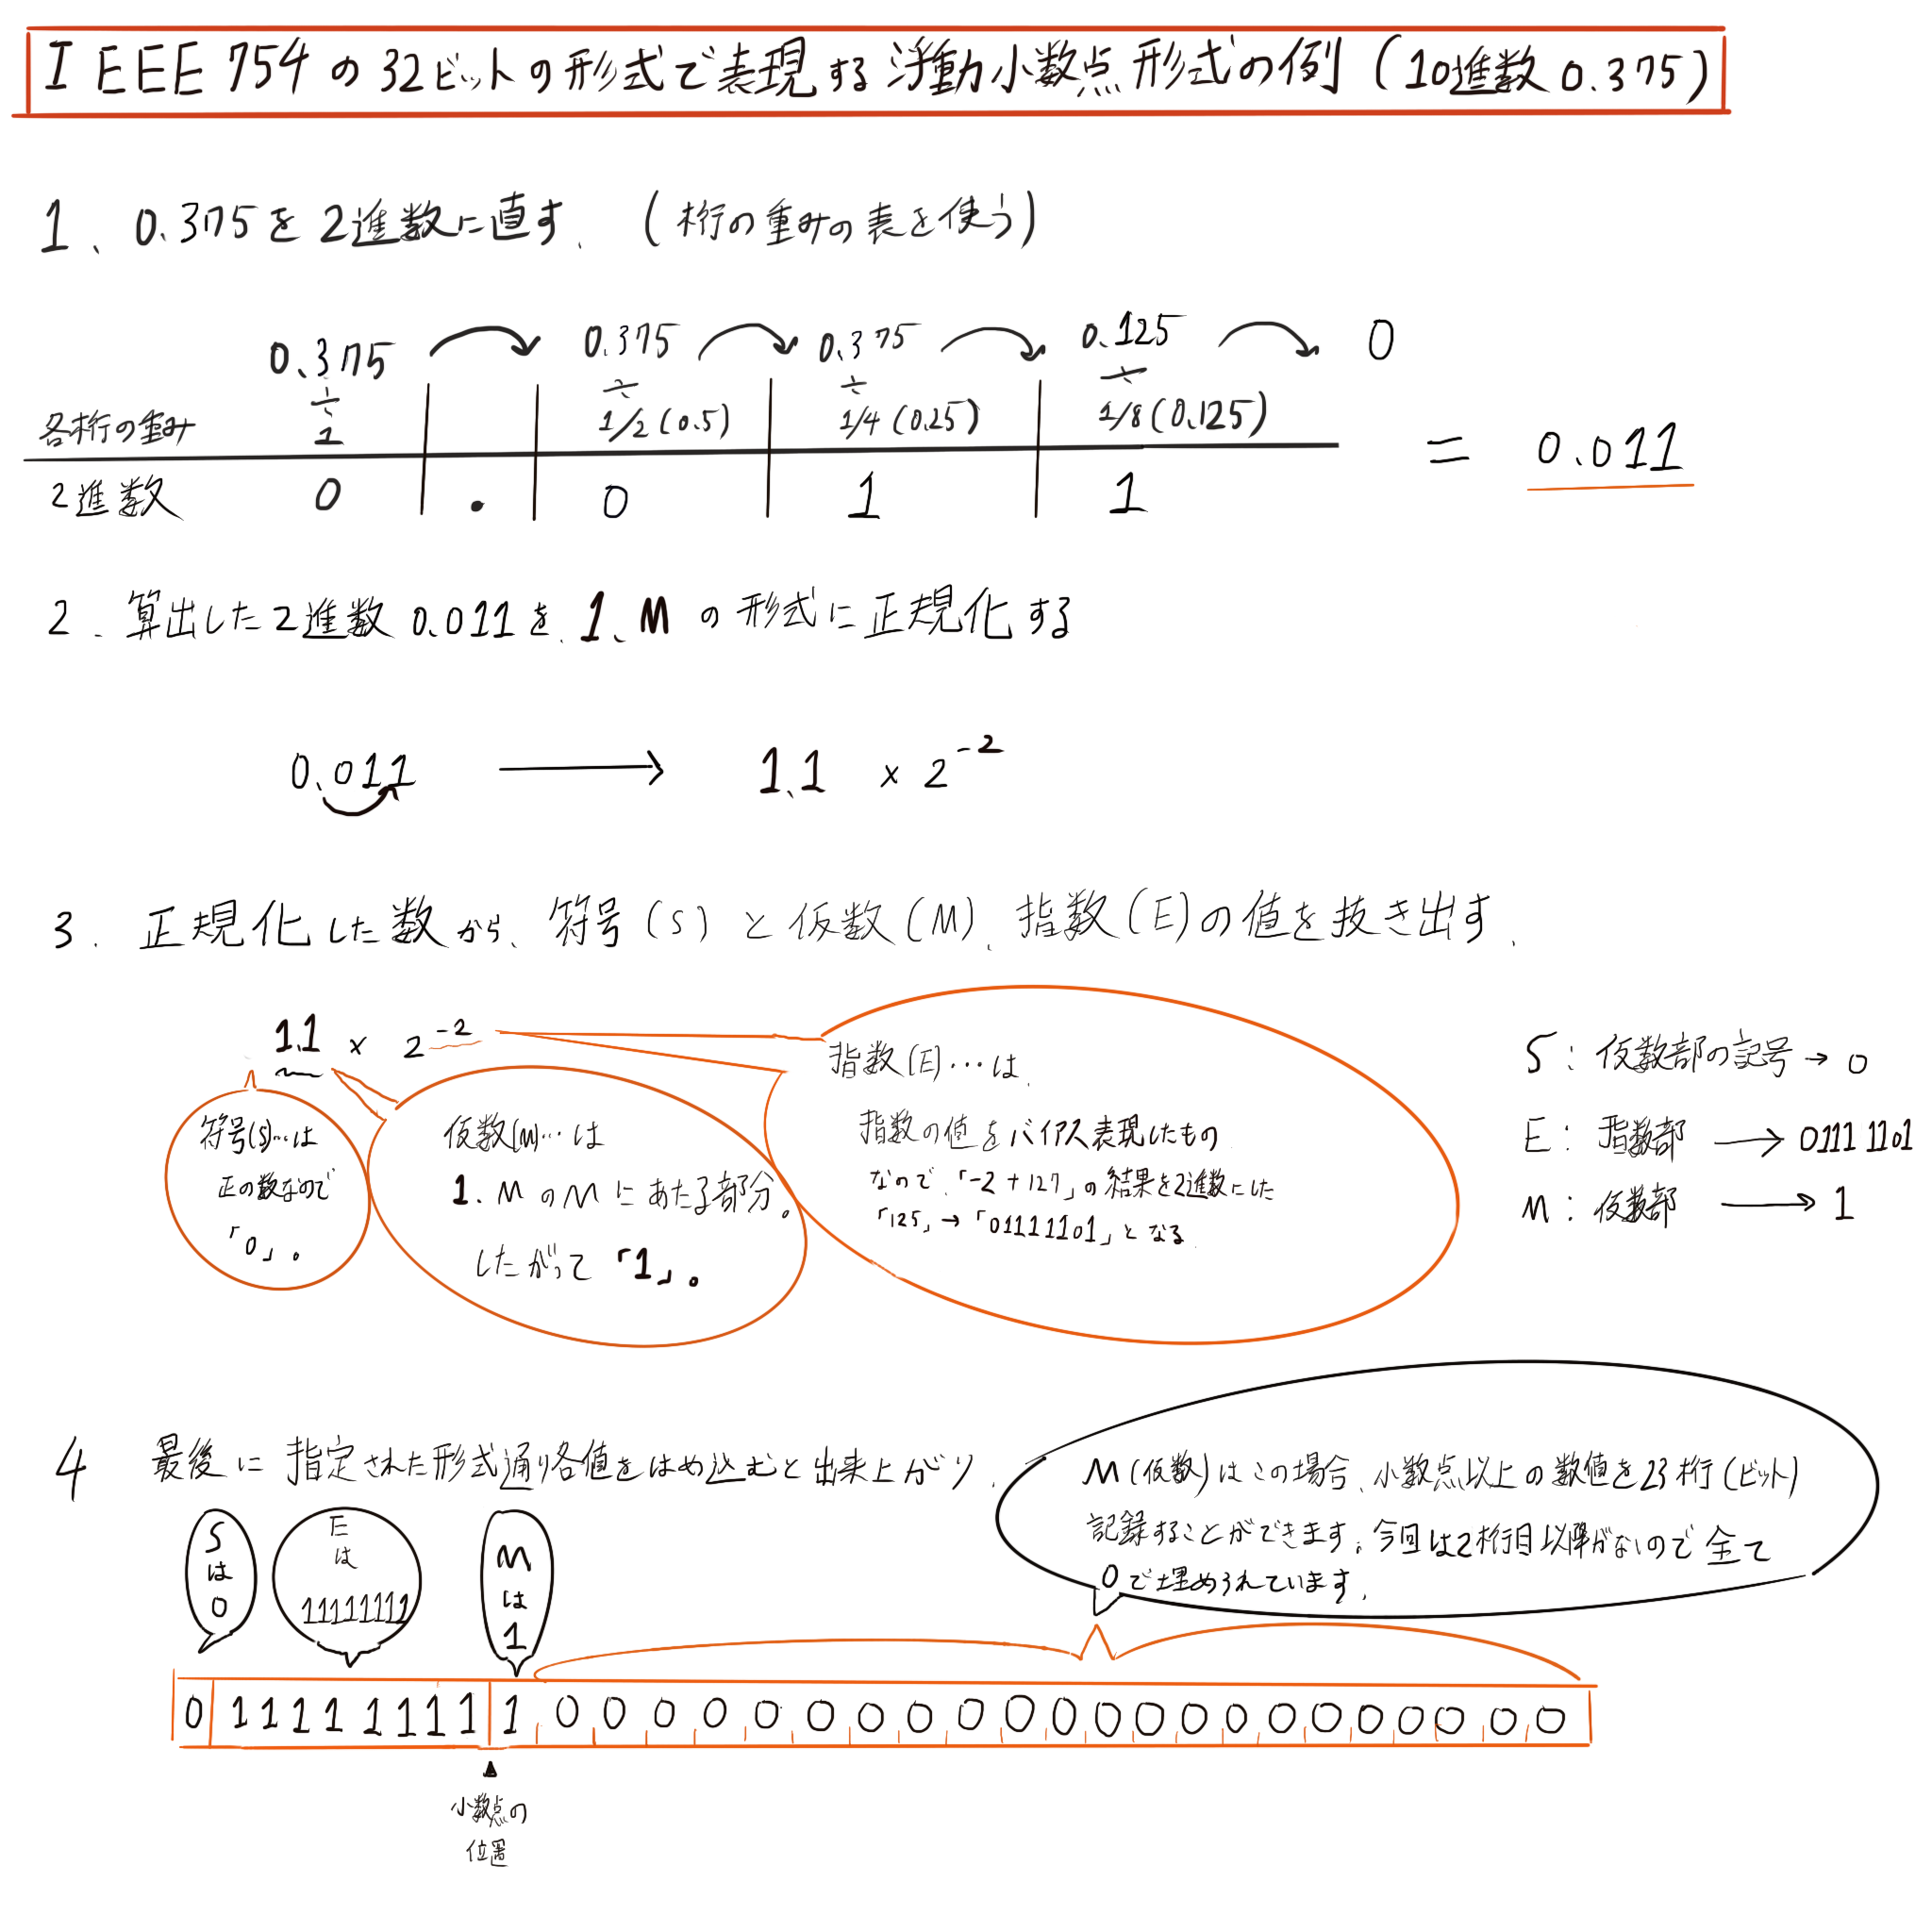 IEEE754の32ビットの形式で表現する浮動小数点形式の例(10進数0.375)
1、0.375を2進数に直す.(桁の重みの表を使う)
0.375 0.375 0.375 0.125 0
÷ ÷ ÷ ÷
各桁の重み 1 1/2(0.5) 1/4(0.25) 1/8(0.125)
2進数 0 . 0 1 1
= 0.011
2.算出した2進数0.011を、1.Mの形式に正規化する
0.011 → 1.1 × 2^-2
3.正規化した数から、符号(S)と仮数(M)、指数(E)の値を抜き出す.
1.1 × 2^-2
符号(S)…は
正の数なので
「0」。
仮数(M)…は
1.MのMにあたる部分。
したがって「1」。
指数(E)…は、
指数の値をバイアス表現したもの
なので、「-2+127」の結果を2進数にした
「125」→「01111101」となる
S:仮数部の記号→0
E:指数部→01111101
M:仮数部→1
4 最後に指定された形式通り各値をはめ込むと出来上がり.
M(仮数)はこの場合、小数点以上の数値を23桁(ビット)
記録することができます。今回は2桁目以降がないので全て
0で埋められています.
Sは0
Eは
11111111
Mは1
0 1 1 1 1 1 1 1 1 1 0 0 0 0 0 0 0 0 0 0 0 0 0 0 0 0 0 0 0 0 0 0
▲
小数点の
位置